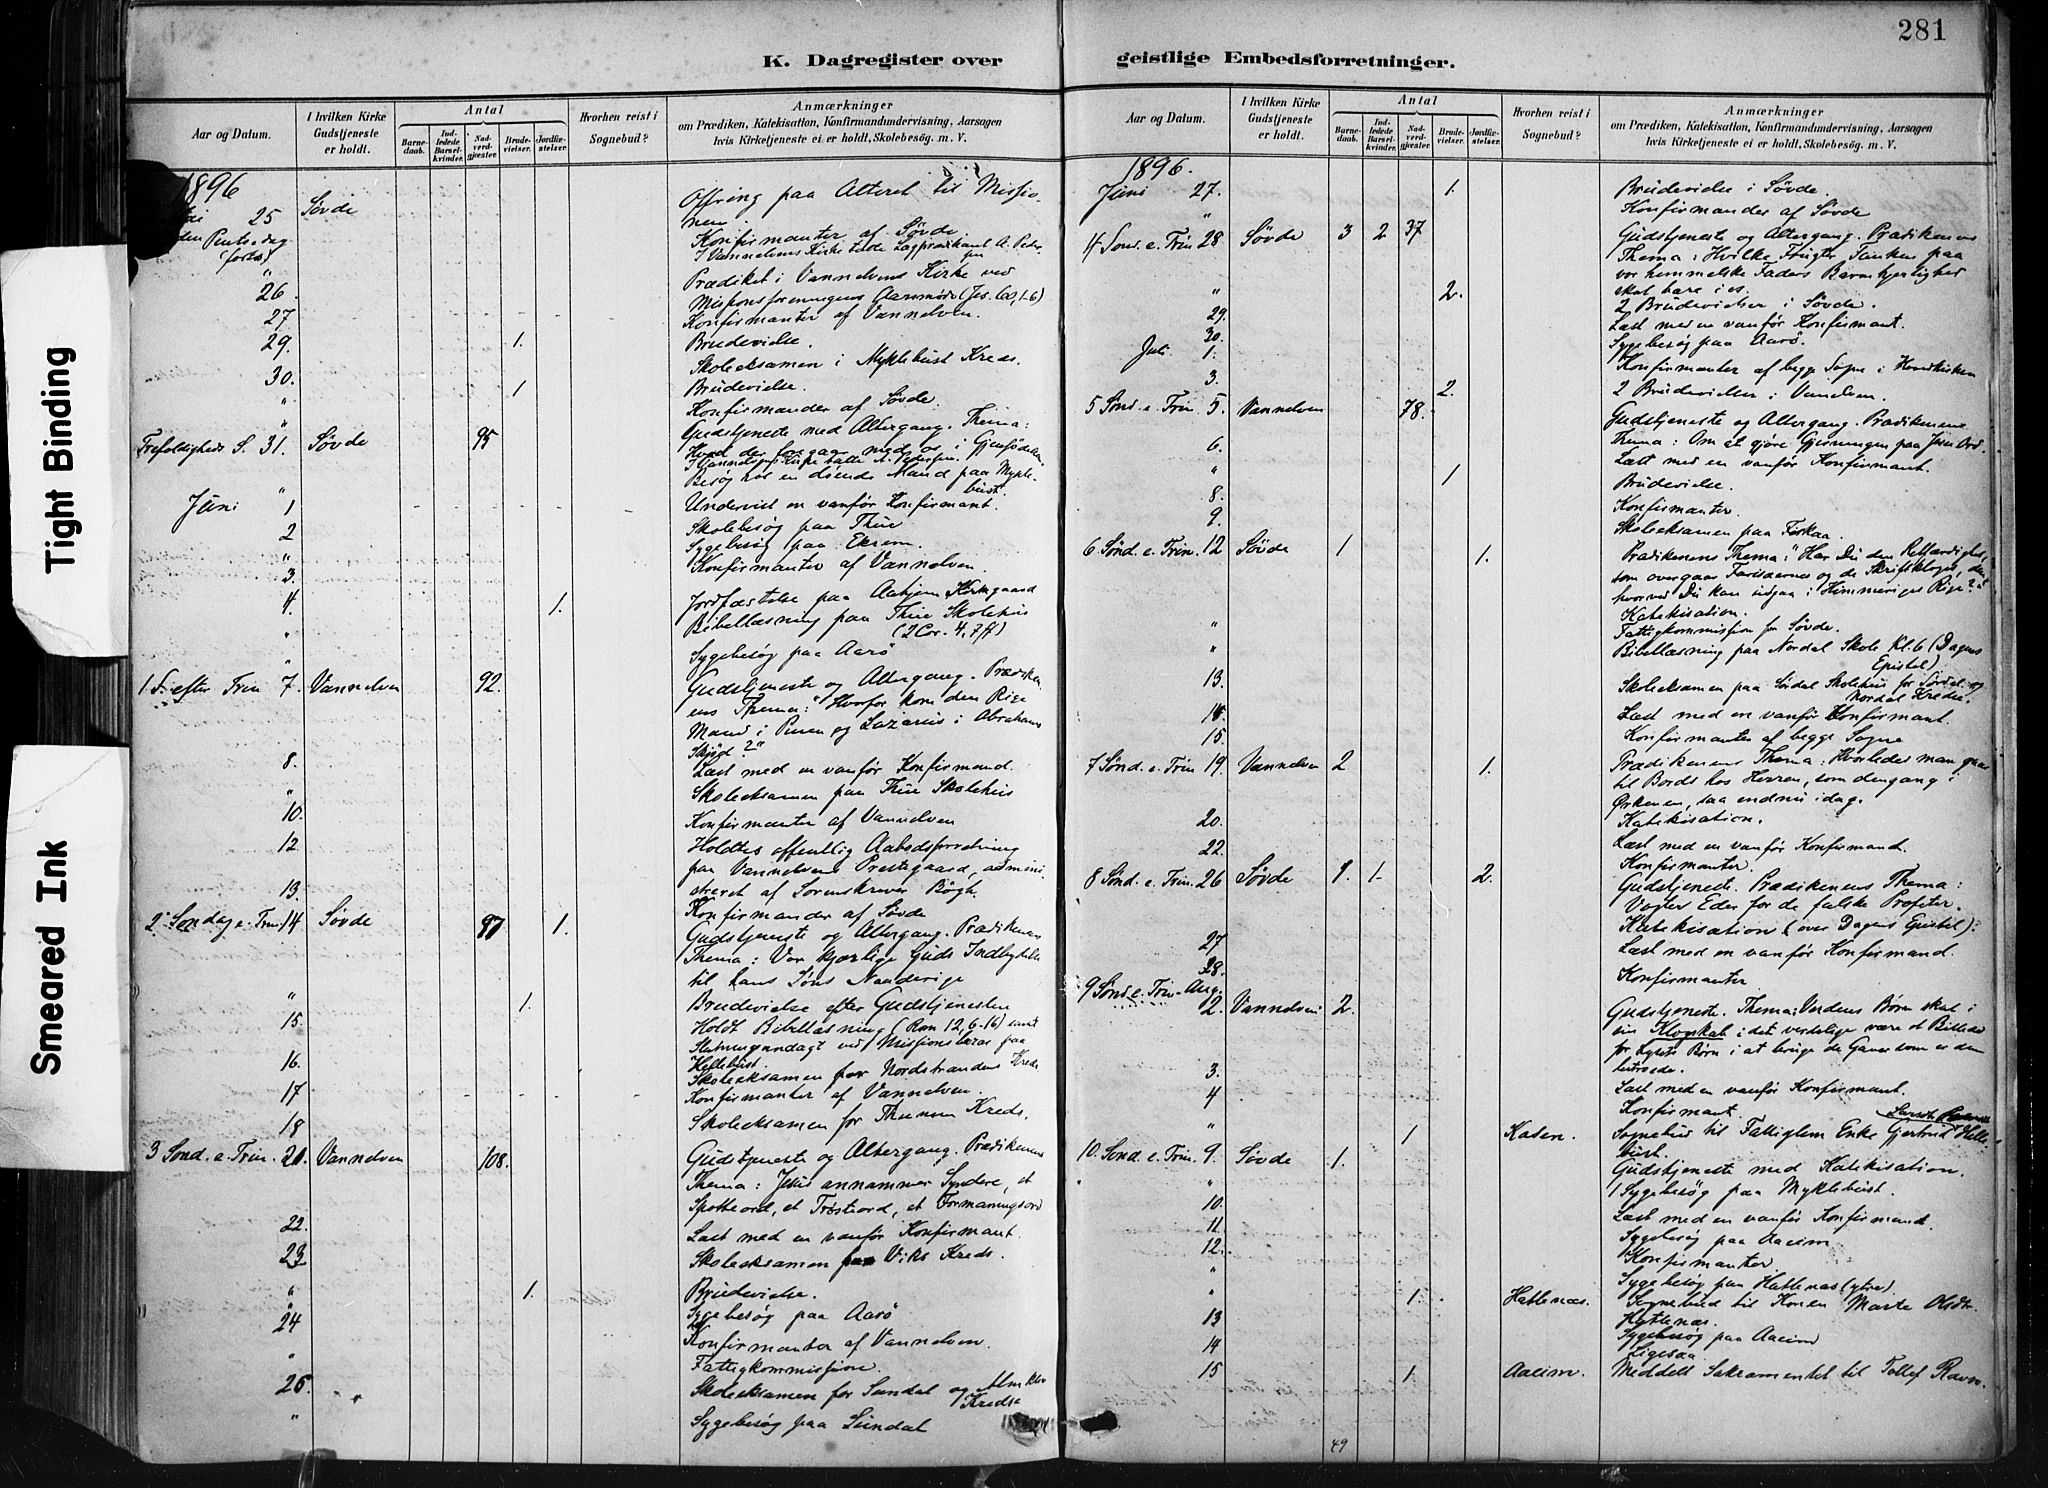 281
K. Dagregister over geistlige Embedsforretninger.
Aar og Datum.
I hvilken Kirke Gudstjeneste er holdt.
Antal
Barnedaab.
Indledede Barselkvinder.
Nadverdgjester.
Brudevielser.
Jordfæstelser.
Hvorhen reist i Sognebud?
Anmærkninger
om Prædiken, Katekisation, Konfirmandundervisning, Aarsagen
hvis Kirketjeneste ei er holdt, Skolebesøg. m. V.
1896
25 Søvde Offring paa Alteret til Missionen.
Pintsedag Konfirmanter af Søvde.
(forts.) I Vannelvens Kirke talde Lægprædikant A. Peder
" Prædiket i Vannelvens Kirke ved
26. Missionsforeningens Aarsmøde (Jes. 60, 1-6)
27 Konfirmanter af Vannelven.
29. 1. Brudevielse.
Skoleeksamen i Myklebust Kreds.
30. 1 Brudevielse.
" Konfirmander af Søvde.
Trefoldigheds S. 31. Søvde 95 Gudstjeneste med Altergang. Thema:
Hvad der foregaar med os i Gjenfødelsen.
Besøg hos en døende Mand paa Myklebust.
Juni 1 Undervist en vanfør Konfirmant.
2 Skolebesøg paa Thue
" Sygebesøg paa Ekrem.
3. Konfirmanter af Vannelven.
4. 1. Jordfæstelse paa Aahjem Kirkegaard
" Bibellæsning paa Thue Skolehus
(2 Cor. 4, 7 ff)
" Sygebesøg paa Aarø
1 S. efter Trin 7. Vannelven 92. Gudstjeneste og Altergang. Prædikenens Thema: "Hvorfor kom den Rige
Mand i Pinen og Lazarus i Abrahams
Skjød?"
8. Læst med en vanfør Konfirmand.
" Skoleeksamen paa Thue Skolehus
10. Konfirmanter af Vannelven
12. Holdtes offentlig Aabodsforretning
paa Vannelvens Prestegaard, administreret af Sorenskriver Bøgh.
13. Konfirmander af Søvde
2. Søndag e. Trin 14 Søvde 97 1. Gudstjeneste og Altergang. Prædikenens
Thema: Vor kjærlige Guds Indbydelse
til hans Søns Naaderige
" 1. Brudevielse efter Gudstjenesten
15. Holdt Bibellæsning (Rom 12, 6-16) samt
Slutningsandagt ved Missionsbasar paa
16. Skoleeksamen for Nordstrandens Kreds
17 Konfirmanter af Vannelven.
18 Skoleeksamen for Thuenen Kreds.
3 Sønd. e. Trin. 21. Vannelven 108. Gudstjeneste og Altergang. Prædikenens
Thema: Jesus annammer Syndere, et
Spotteord, et Trøsteord, et Formaningsord
22. Læst med en vanfør Konfirmant.
23 Skoleeksamen Viks Kreds.
" 1. Brudevielse.
" Sygebesøg paa Aarø
24 Konfirmanter af Vannelven.
" Fattigkommission.
26. Skoleeksamen for Sundal og Almklov Kredse
" Sygebesøg paa Sundal
1896.
Juni 27. 1. Brudevielse i Søvde.
Konfirmander af Søvde
4 Sønd. e. Trin 28 Søvde 3 2 37 Gudstjeneste og Altergang. Prædikenens
Thema: Hvilke Frugter Tanken paa
vor himmelske Faders Barmhjertighed
skal bære i os.
" 2. 2 Brudevielser i Søvde.
29. Læst med en vanfør Konfirmant.
30. Sygebesøg paa Aarø.
Juli 1. Konfirmanter af begge Sogne i Hovedkirken
3. 2. 2 Brudevielser i Vanelven.
5 Sønd. e. Trin. 5. Vannelven 78. Gudstjeneste og Altergang. Prædikenens
Thema: Om at gjøre Gjerningen paa Jesu Ord.
6. Læst med en vanfør Konfirmant.
" 1 Brudevielse.
8. Konfirmanter.
9. Skoleeksamen paa Fiskaa.
6 Sønd. e. Trin. 12 Søvde 1 1. Prædikenens Thema: "Har Du den Retfærdighed,
som overgaar Farisæernes og de Skriftkloges, den
hvorved Du kan indgaa i Himmeriges Rige?"
Katekisation.
" Fattigkommission for Søvde.
" Bibellæsning paa Nordal Skole Kl. 6 (Dagens
Epistel)
13. Skoleeksamen paa Sørdal Skolehus for Sørdal og
Nordal Kredse.
14. Læst med en vanfør Konfirmant.
15. Konfirmanter af begge Sogne
7 Sønd. e. Trin 19. Vannelven 2 1. Prædikenens Thema: Hvorledes man gaar
til Bords hos Herren, som dengang i
Ørkenen, saa endnu idag.
Katekisation.
20. Læst med en vanfør Konfirmand.
22. Konfirmanter.
8 Sønd. e. Trin. 26 Søvde 1. 1. 2. Gudstjeneste. Prædikenens Thema:
Vogter Eder for de falske Profeter.
Katekisation (over Dagens Epistel).
27 Læst med en vanfør Konfirmand.
28. Konfirmanter
9 Sønd. e. Trin. Aug. 2. Vannelven 2. Gudstjeneste. Thema: Verdens Børn skal i
sin Klogskab i det verdslige være et Billede
for Lysets Børn i at bruge de Gaver som er dem
betroede.
3. Læst med en vanfør Konfirmant.
4 Konfirmant.
" 1 Kasen. Sognebud til Fattiglem Enke Gjertrud Hellebust.
10. Sønd. e. Trin. 9. Søvde 1. Gudstjeneste med Katekisation.
" " 1 Sygebesøg paa Myklebust.
10. Læst med en vanfør Konfirmand.
11. Sygebesøg paa Aaeim
12. Konfirmanter.
" Sygebesøg paa Hatlenæs (ytre)
" 1. Hatlenæs. Sognebud til Konen Marte Olsdtr.
Hatlenæs.
13 Sygebesøg paa Aaeim
14 Ligesaa
15 1 Aaeim. Meddelt Sakramentet til Tollef Ravn.
49
Tight Binding
Smeared Ink